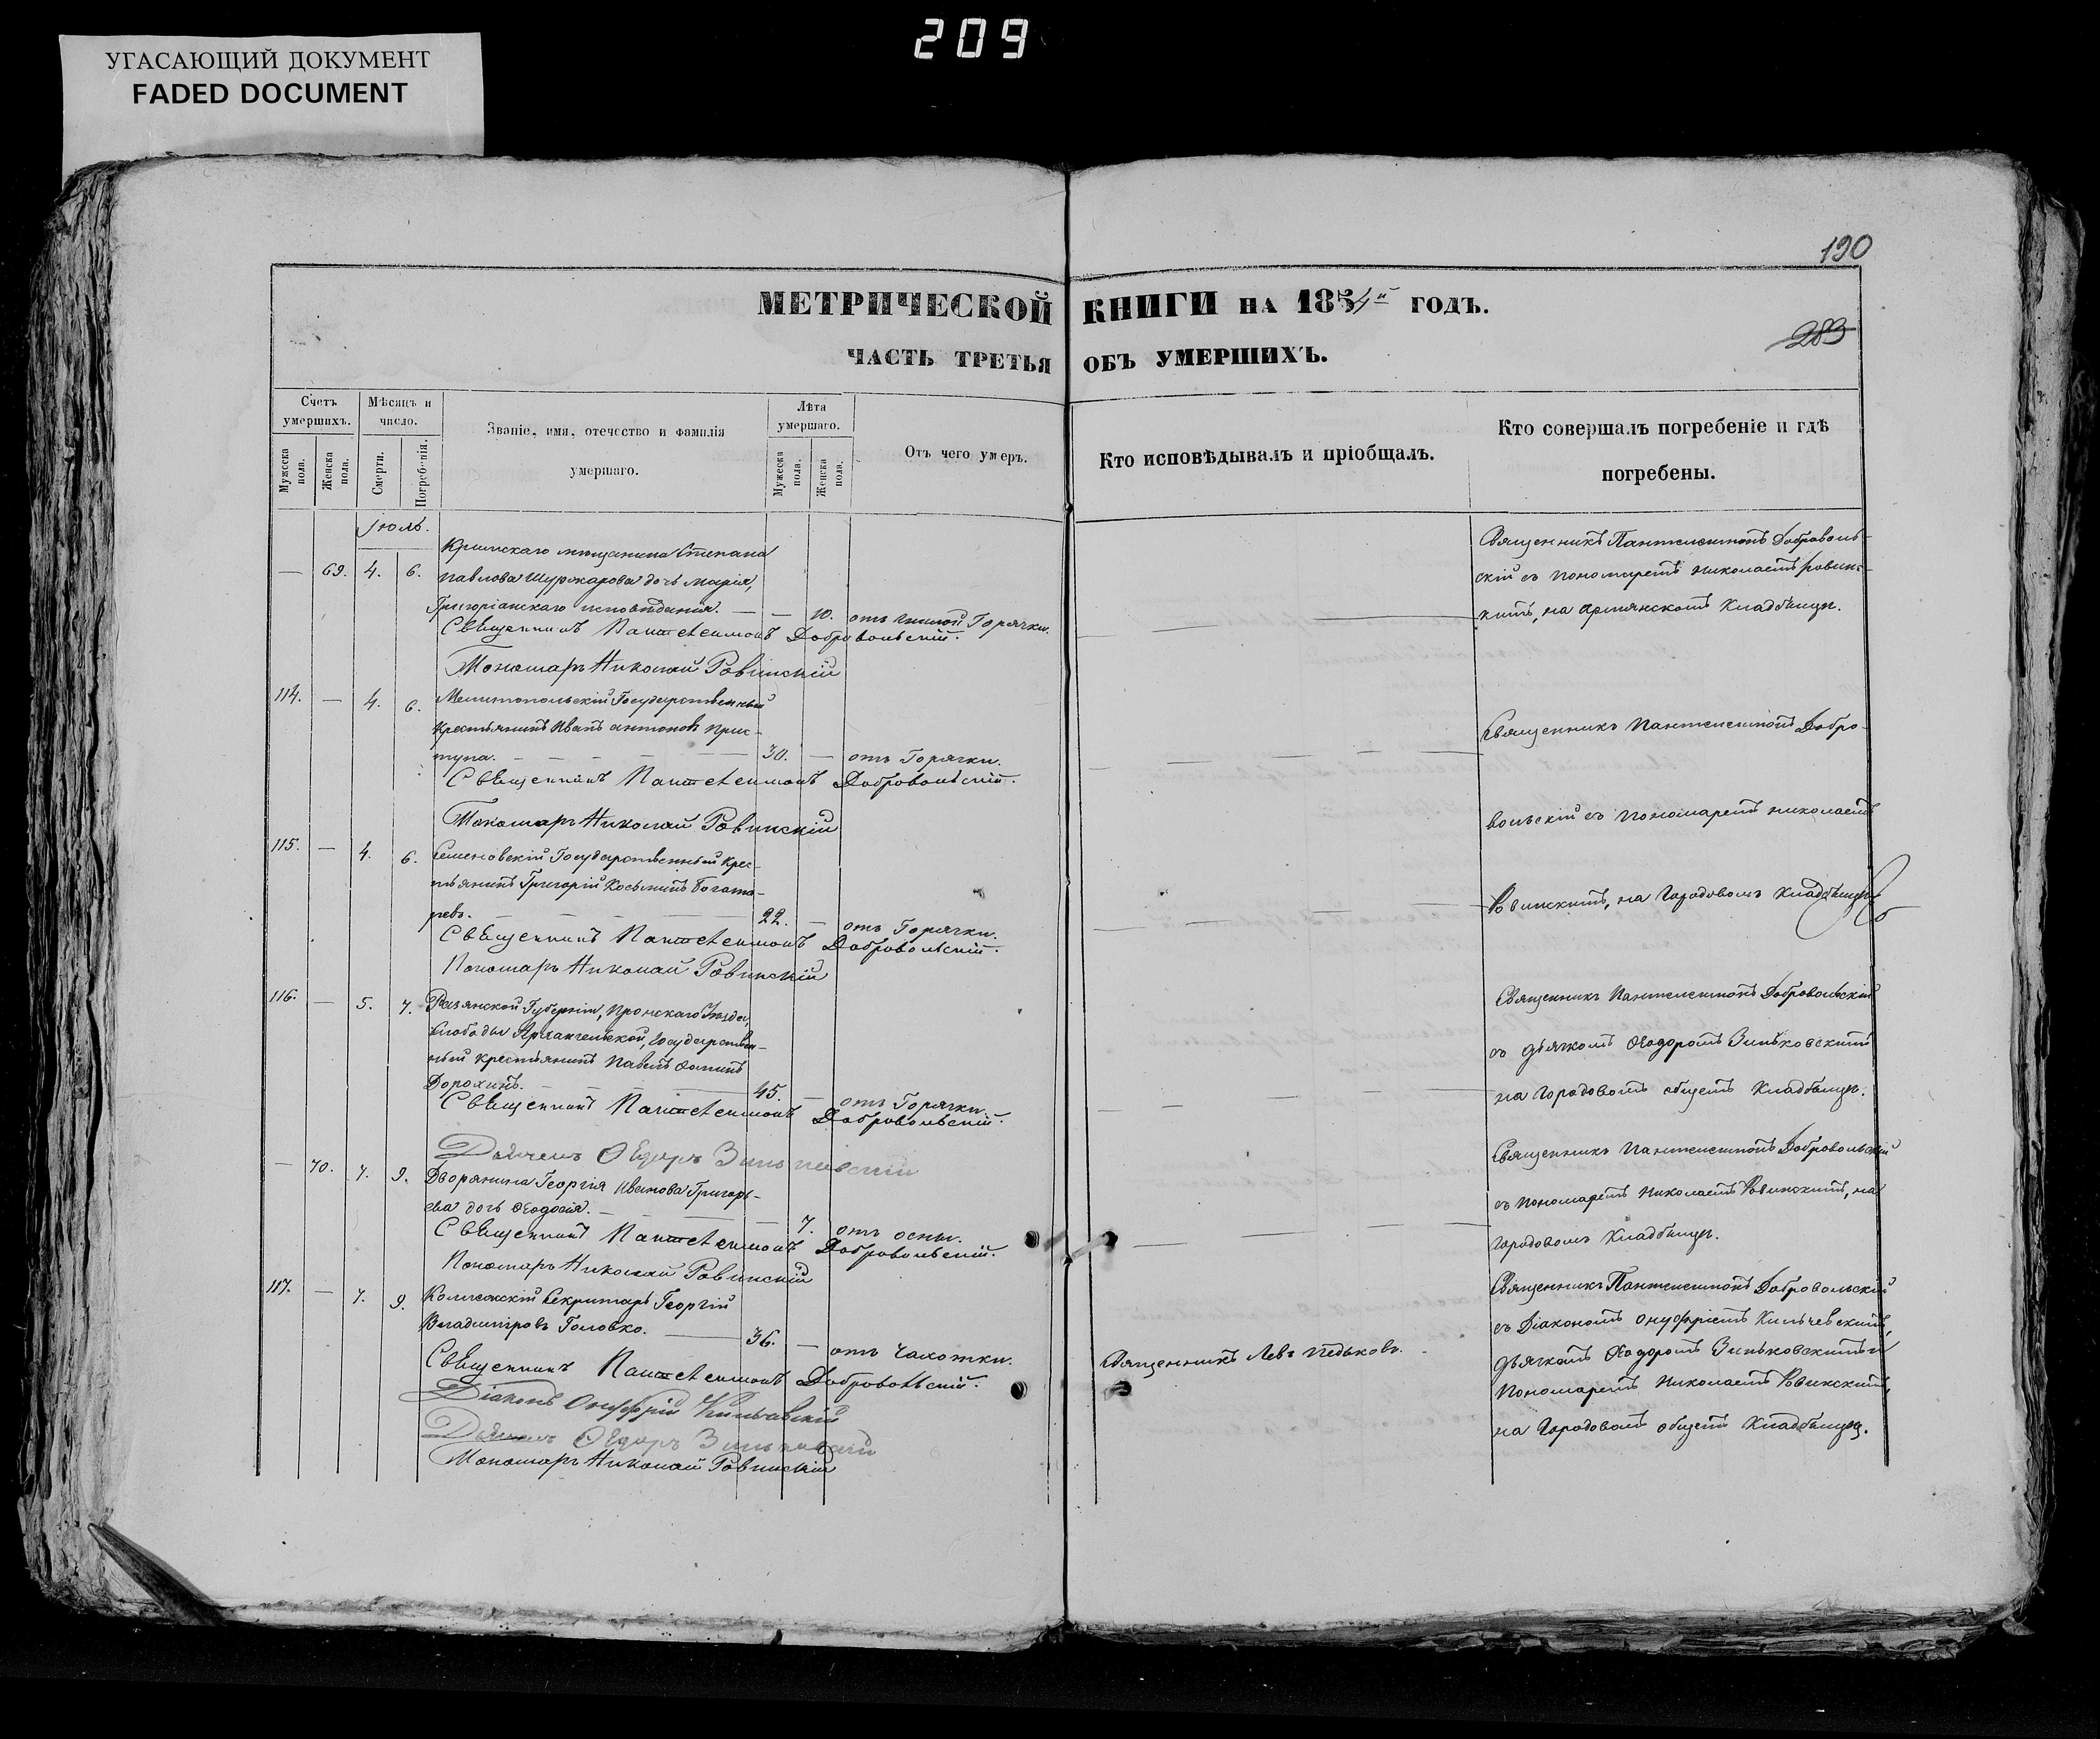 209
УГАСАЮЩИЙ ДОКУМЕНТ
FADED DOCUMENT
190
МЕТРИЧЕСКОЙ КНИГИ НА 1854й ГОДЪ.
283
ЧАСТЬ ТРЕТЬЯ ОБЪ УМЕРШИХЪ.
Счетъ умершихъ.
Мужеска пола.
Женска пола.
Мѣсяцъ и число.
Смерти.
Погребенія.
Званіе, имя, отечество и фамилія умершаго.
Лѣта умершаго.
Мужеска пола.
Женска пола.
Отъ чего умеръ.
Кто исповѣдывалъ и пріобщалъ.
Кто совершалъ погребеніе и гдѣ погребены.
Іюль.
— 69. 4. 6.
Крымскаго мещанина Степана
Павлова дочь Марія,
Григоріанскаго исповѣданія. — — 10. отъ гнилой Горячки.
Священникъ Пантелеимонъ Добровольскій.
Пономарь Николай Ровинскій
Священникъ Пантелеимонъ Доброволь-
скій съ пономаремъ Николаемъ Ровинс-
кимъ, на Армянскомъ Кладбищѣ.
114. — 4. 6.
Мелитопольскій Государственный
крестьянинъ Иванъ Антоновъ Прис-
тупа. — 30. — отъ Горячки.
Священникъ Пантелеимонъ Добровольскій.
Пономарь Николай Ровинскій
Священникъ Пантелеимонъ Добро-
вольскій съ Пономаремъ Николаемъ
Ровинскимъ, на Городовомъ Кладбищѣ
115. — 4. 6.
Семеновскій Государственный крес-
тьянинъ Григорій Косьминъ Богаты-
ревъ. — 22. — отъ Горячки.
Священникъ Пантелеимонъ Добровольскій.
Пономарь Николай Ровинскій
116. — 5. 7.
Рязанской Губерніи, Пронскаго Уѣзда,
Слободы Архангельской, Государствен-
ный крестьянинъ Павелъ
Дорохинъ. — 45. — отъ Горячки.
Священникъ Пантелеимонъ Добровольскій.
Дьячекъ Ѳедоръ Зиньковскій
Священникъ Пантелеимонъ Добровольскій
съ дьячкомъ Ѳеодоромъ Зиньковскимъ
на Городовомъ общемъ Кладбищѣ.
— 70. 7. 9.
Дворянина Георгія Иванова Григорь-
ева дочь Ѳеодосія. — 7. отъ оспы.
Священникъ Пантелеимонъ Добровольскій.
Пономарь Николай Ровинскій
Священникъ Пантелеимонъ Добровольскій
съ Пономаремъ Николаемъ Ровинскимъ, на
Городовомъ Кладбищѣ.
117. — 7. 9.
Коллежскій Секретарь Георгій
Владиміровъ Головко. — 36. — отъ Чахотки.
Священникъ Левъ
Священникъ Пантелеимонъ Добровольскій.
Діаконъ Онуфрій Кильчевскій
Дьячекъ Ѳедоръ Зиньковскій
Пономарь Николай Ровинскій
Священникъ Пантелеимонъ Добровольскій
съ Діакономъ Онуфріемъ Кильчевскимъ,
дьячкомъ Ѳеодоромъ Зиньковскимъ и
Пономаремъ Николаемъ Ровинскимъ,
на Городовомъ общемъ Кладбищѣ.